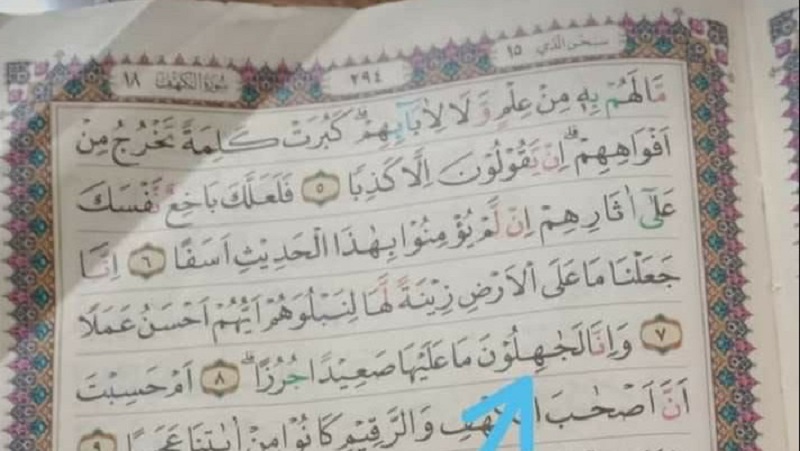 سبحن الذي ١٥ ٢٩٤ سورة الكهف ١٨
مَّا لَهُمْ بِهٖ مِنْ عِلْمٍ وَّلَا لِاٰبَاۤىِٕهِمْۗ كَبُرَتْ كَلِمَةً تَخْرُجُ مِنْ
اَفْوَاهِهِمْۗ اِنْ يَّقُوْلُوْنَ اِلَّا كَذِبًا ٥ فَلَعَلَّكَ بَاخِعٌ نَّفْسَكَ
عَلٰٓى اٰثَارِهِمْ اِنْ لَّمْ يُؤْمِنُوْا بِهٰذَا الْحَدِيْثِ اَسَفًا ٦ اِنَّا
جَعَلْنَا مَا عَلَى الْاَرْضِ زِيْنَةً لَّهَا لِنَبْلُوَهُمْ اَيُّهُمْ اَحْسَنُ عَمَلًا
٧ وَاِنَّا لَجٰهِلُوْنَ مَا عَلَيْهَا صَعِيْدًا جُرُزًاۗ ٨ اَمْ حَسِبْتَ
اَنَّ اَصْحٰبَ وَالرَّقِيْمِ كَانُوْا مِنْ اٰيٰتِنَا عَجَبًا ٩